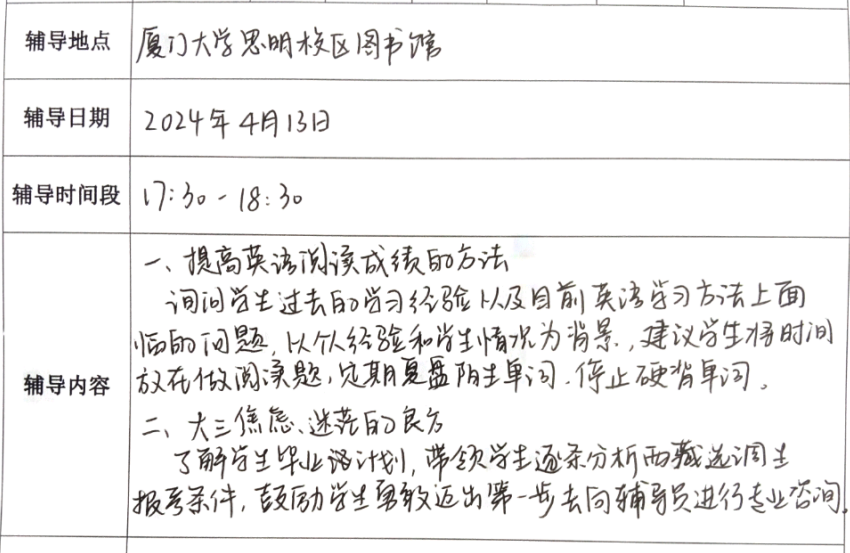 辅导地点 厦门大学思明校区图书馆
辅导日期 2024年4月13日
辅导时间段 17:30-18:30
辅导内容
一、提高英语阅读成绩的方法
询问学生过去的学习经验以及目前英语学习方法上面
临的问题，以个人经验和学生情况为背景，建议学生将时间
放在做阅读题，定期复盘陌生单词、停止硬背单词。
二、大三焦虑、迷茫的良方
了解学生毕业后计划，带领学生逐条分析西藏选调生
报考条件，鼓励学生勇敢迈出第一步去向辅导员进行专业咨询。